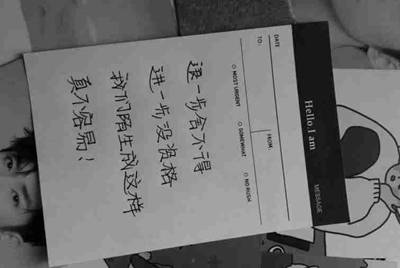 Hello.I am
MESSAGE
DATE
TO:
FROM:
○ MOST URGENT ○ SOMEWHAT ○ NO RUSH
退一步舍不得
进一步没资格
我们陌生成这样
真不容易！